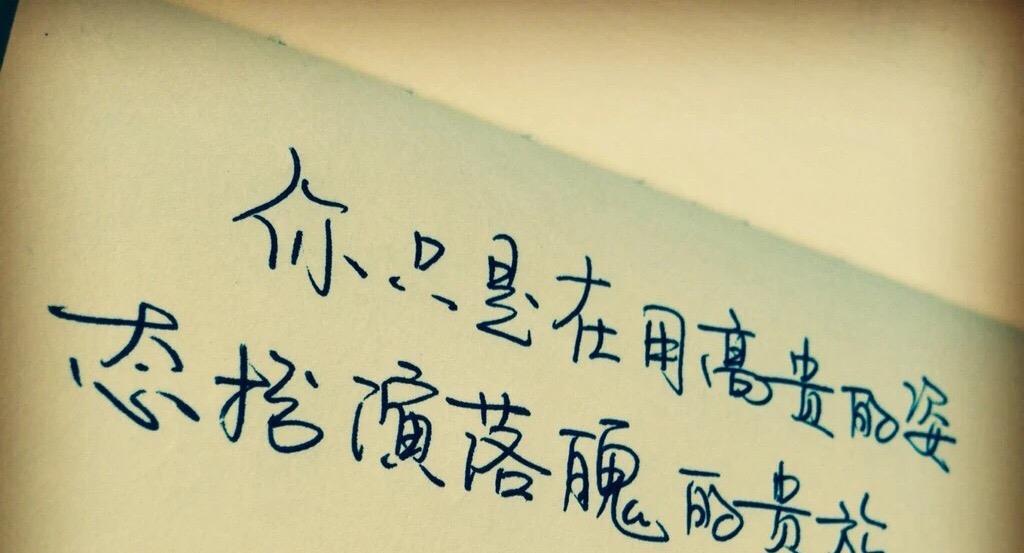 你只是在用高贵的姿
态扮演落魄的贵族